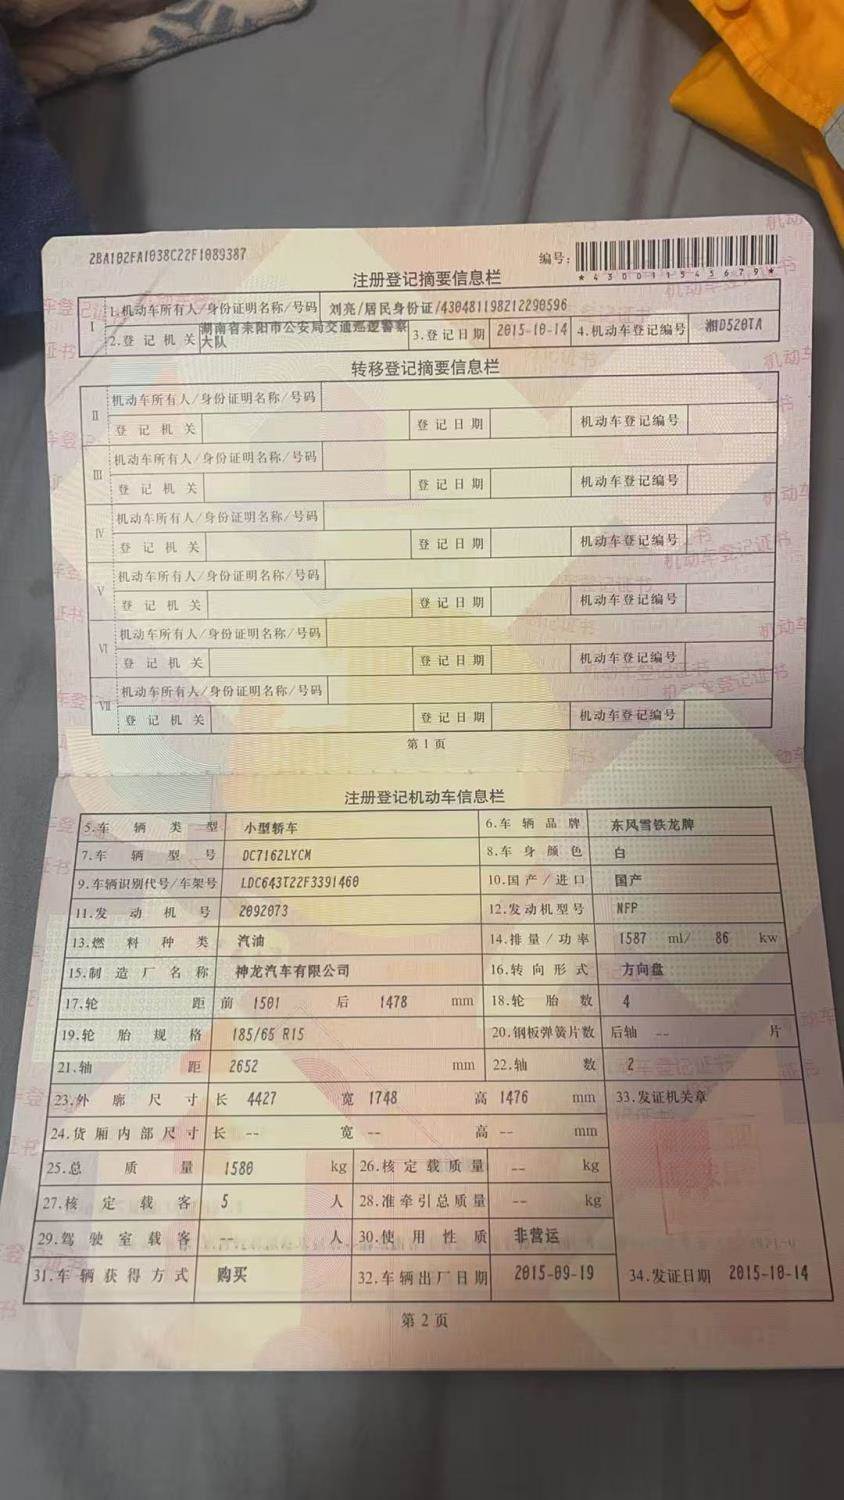 2BA102FA1038C22F1089387
编号：
*430011545679*
注册登记摘要信息栏
I 1.机动车所有人/身份证明名称/号码 刘亮/居民身份证/430481198212290596
2.登记机关 湖南省耒阳市公安局交通巡逻警察大队 3.登记日期 2015-10-14 4.机动车登记编号 湘D520TA
转移登记摘要信息栏
II 机动车所有人/身份证明名称/号码
登记机关 登记日期 机动车登记编号
III 机动车所有人/身份证明名称/号码
登记机关 登记日期 机动车登记编号
IV 机动车所有人/身份证明名称/号码
登记机关 登记日期 机动车登记编号
V 机动车所有人/身份证明名称/号码
登记机关 登记日期 机动车登记编号
VI 机动车所有人/身份证明名称/号码
登记机关 登记日期 机动车登记编号
VII 机动车所有人/身份证明名称/号码
登记机关 登记日期 机动车登记编号
第1页
注册登记机动车信息栏
5.车辆类型 小型轿车 6.车辆品牌 东风雪铁龙牌
7.车辆型号 DC7162LYCM 8.车身颜色 白
9.车辆识别代号/车架号 LDC643T22F3391460 10.国产/进口 国产
11.发动机号 2092073 12.发动机型号 NFP
13.燃料种类 汽油 14.排量/功率 1587 ml/ 86 kw
15.制造厂名称 神龙汽车有限公司 16.转向形式 方向盘
17.轮距 前 1501 后 1478 mm 18.轮胎数 4
19.轮胎规格 185/65 R15 20.钢板弹簧片数 后轴 -- 片
21.轴距 2652 mm 22.轴数 2
23.外廓尺寸 长 4427 宽 1748 高 1476 mm 33.发证机关章
24.货厢内部尺寸 长 -- 宽 -- 高 -- mm
25.总质量 1580 kg 26.核定载质量 -- kg
27.核定载客 5 人 28.准牵引总质量 -- kg
29.驾驶室载客 -- 人 30.使用性质 非营运
31.车辆获得方式 购买 32.车辆出厂日期 2015-09-19 34.发证日期 2015-10-14
第2页